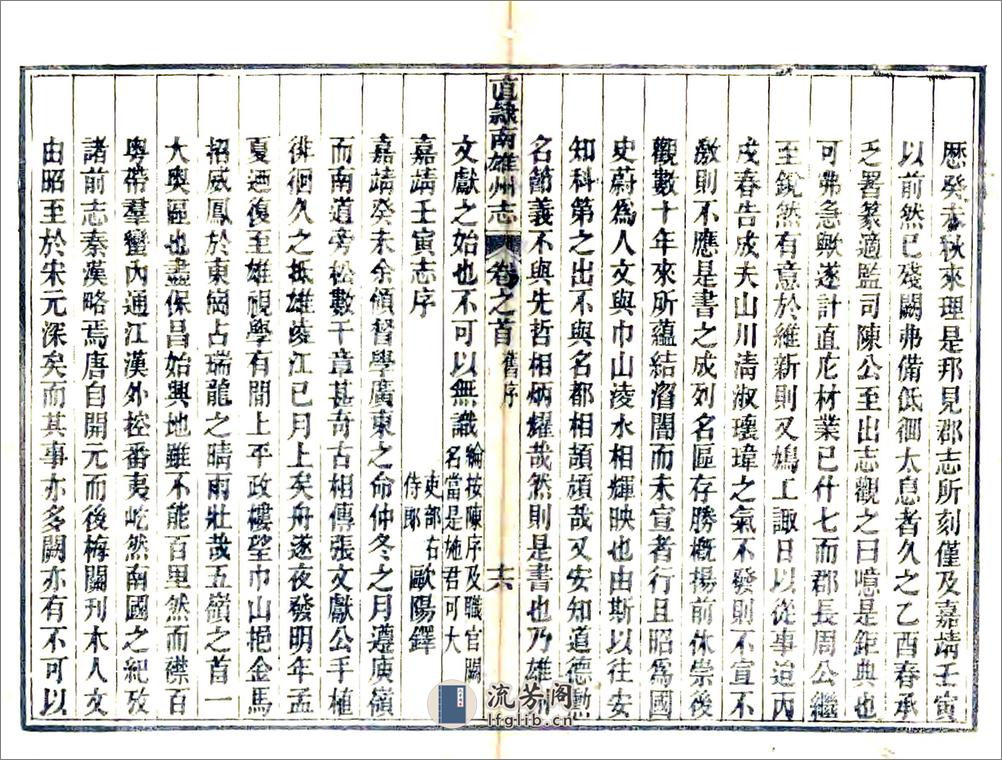 歷癸未秋來理是邦見郡志所刻僅及嘉靖壬寅
以前然已殘闕弗備低徊太息者久之乙酉春承
乏署篆適監司陳公至出志觀之曰噫是鉅典也
可弗急歟遂計直庀材業已什七而郡長周公繼
至銳然有意於維新則又鳩工諏日以從事迨丙
戌春告成夫山川清淑瓌瑋之氣不發則不宣不
激則不應是書之成列名區存勝概揚前休崇後
觀數十年來所蘊結滀閣而未宣者行且昭為國
史蔚為人文與巾山凌水相輝映也由斯以往安
知科第之出不與名都相頡頏哉又安知道德勳
名節義不與先哲相炳耀哉然則是書也乃雄州
直隸南雄州志 卷之首 舊序 十六
文獻之始也不可以無識 綸按陳序及職官闕
名當是施君可大
嘉靖壬寅志序 吏部右
侍郎 歐陽鐸
嘉靖癸未余領督學廣東之命仲冬之月遵庾嶺
而南道旁松數千章甚奇古相傳張文獻公手植
徘徊久之抵雄凌江已月上矣舟遂夜發明年孟
夏迺復至雄視學有間上平政樓望巾山挹金馬
招威鳳於東岡占瑞龍之晴雨壯哉五嶺之首一
大奧區也盡保昌始興地雖不能百里然而襟百
粵帶羣蠻內通江漢外控番夷屹然南國之紀攷
諸前志秦漢略焉唐自開元而後梅關刊木人文
由昭至於宋元深矣而其事亦多闕亦有不可以
流芳阁
lfglib.cn